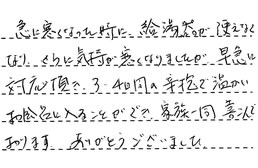 急に寒くなった時に給湯器が使えなく
なり、さらに気持が寒くなりましたが、早急に
対応頂き、3、4日間の辛抱で温かい
お風呂に入ることができ、家族一同喜んで
おります。ありがとうございました。